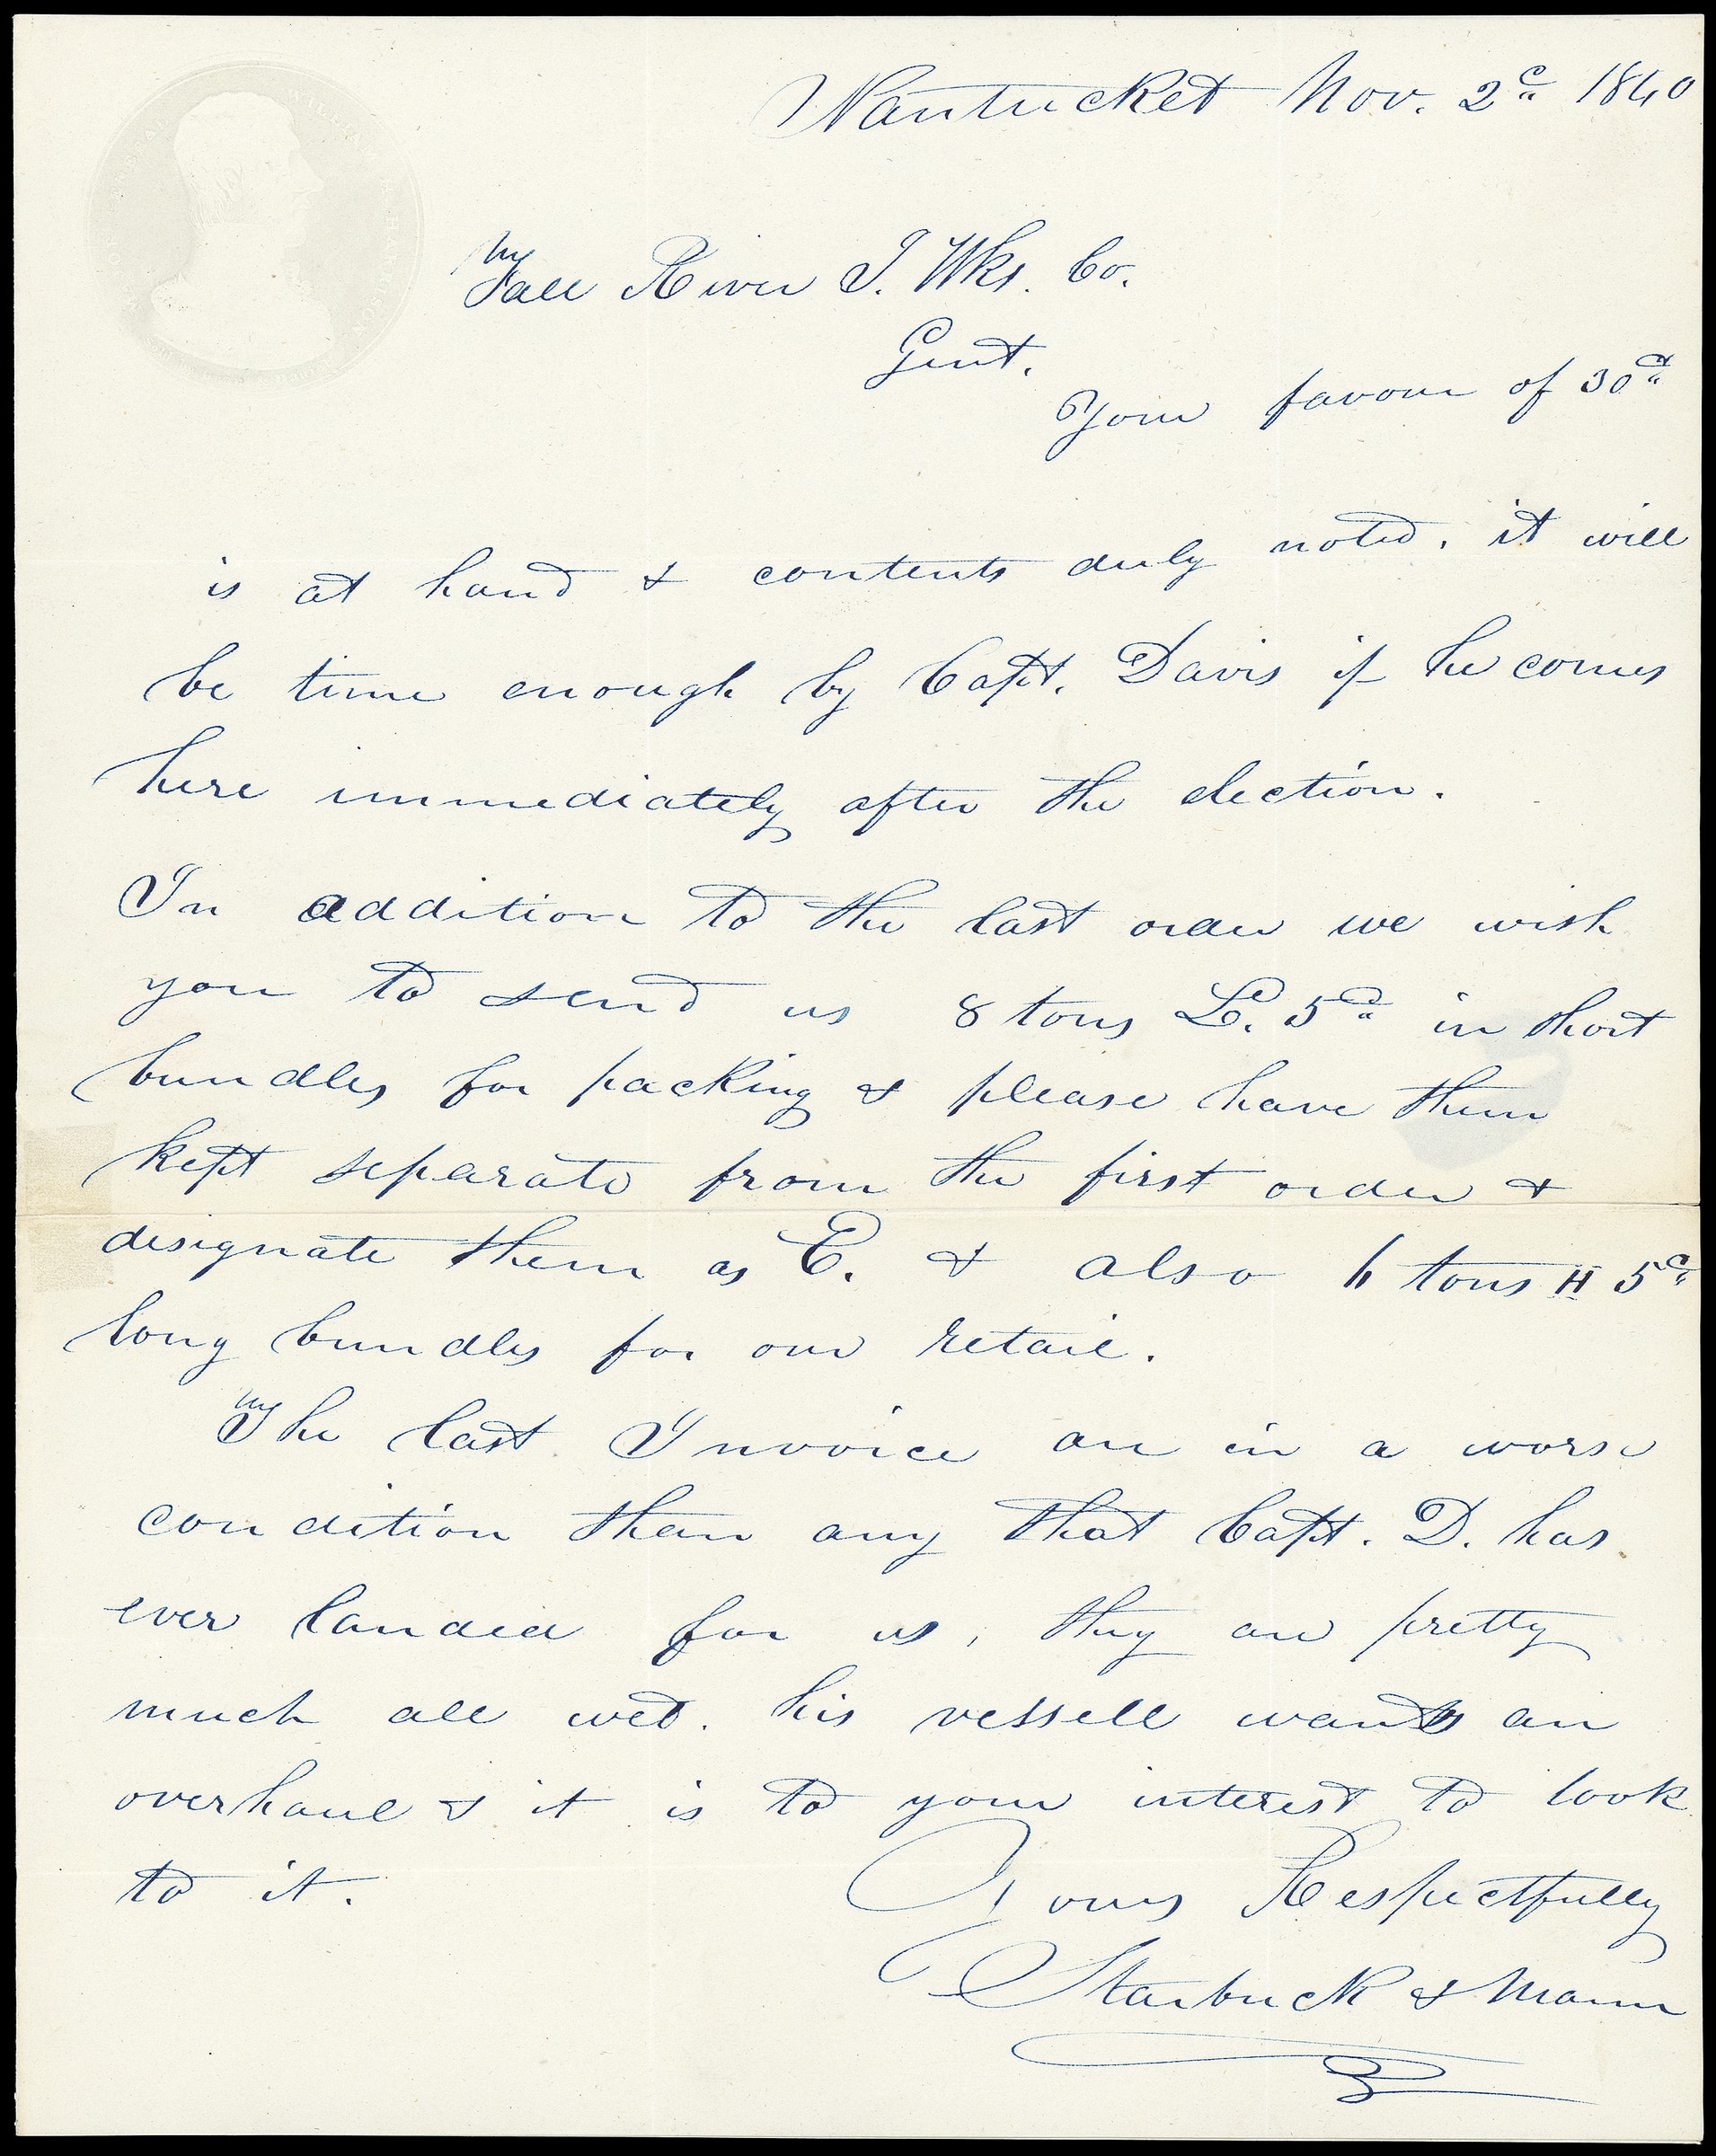 Nantucket Nov. 2d 1840
Fall River I. Wks. Co.
Gent.
Your favour of 30th
is at hand & contents duly noted. it will
be time enough by Capt. Davis if he comes
here immediately after the election.
In addition to the last order we wish
you to send us 8 tons L. 5d in short
bundles for packing & please have them
kept separate from the first order &
designate them as C. & also 6 tons H 5d
long bundles for our retail.
The last Invoice are in a worse
condition than any that Capt. D. has
ever landed for us, they are pretty
much all wet. his vessell wants an
overhaul & it is to your interest to look
to it.
Yours Respectfully
Starbuck & Mann